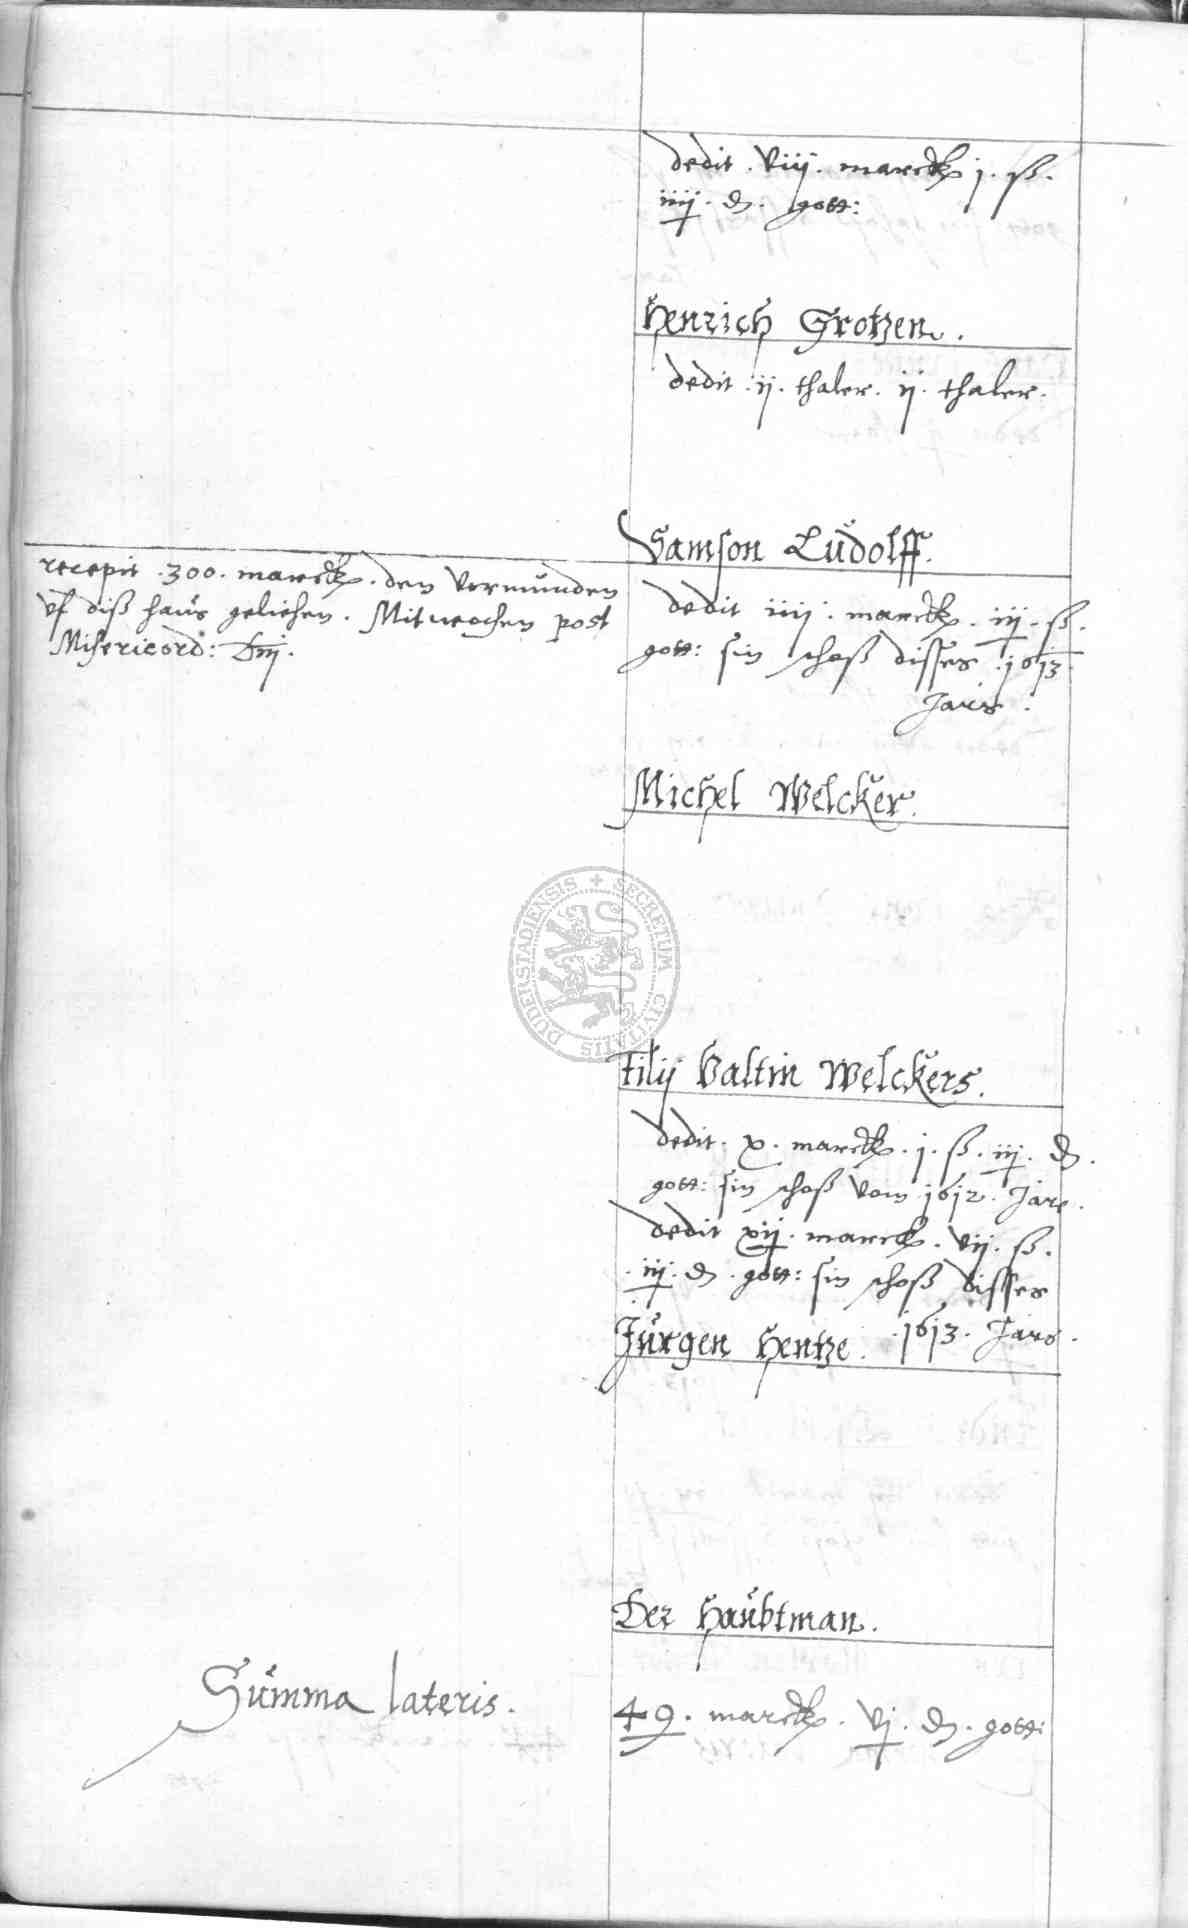 dedit . viij . marck j . ß .
iiij . d . gott:
Henrich Grotzen .
dedit . ij . thaler . ij . thaler .
Samson Ludolff .
recepit . 300 . marck . den vermunden
vf diß haus geliehen . Mitwochen post
Misericord: Dnj .
dedit iiij . marck . iij . ß .
gott: sin schoß disses . 1613 .
Jars .
Michel Welcker .
SECRETUM CIVITATIS DUDERSTADIENSIS
filij Valtin Welckers .
dedit . x . marck . j . ß . iij . d .
gott: sin schoß vom . 1612 . Jare .
dedit xij . marck . vij . ß .
. iij . d . gott: sin schoß disses
. 1613 . Jars .
Jurgen Hentze .
Der Haubtman .
Summa lateris .
49 . marck . vj . d . gott: